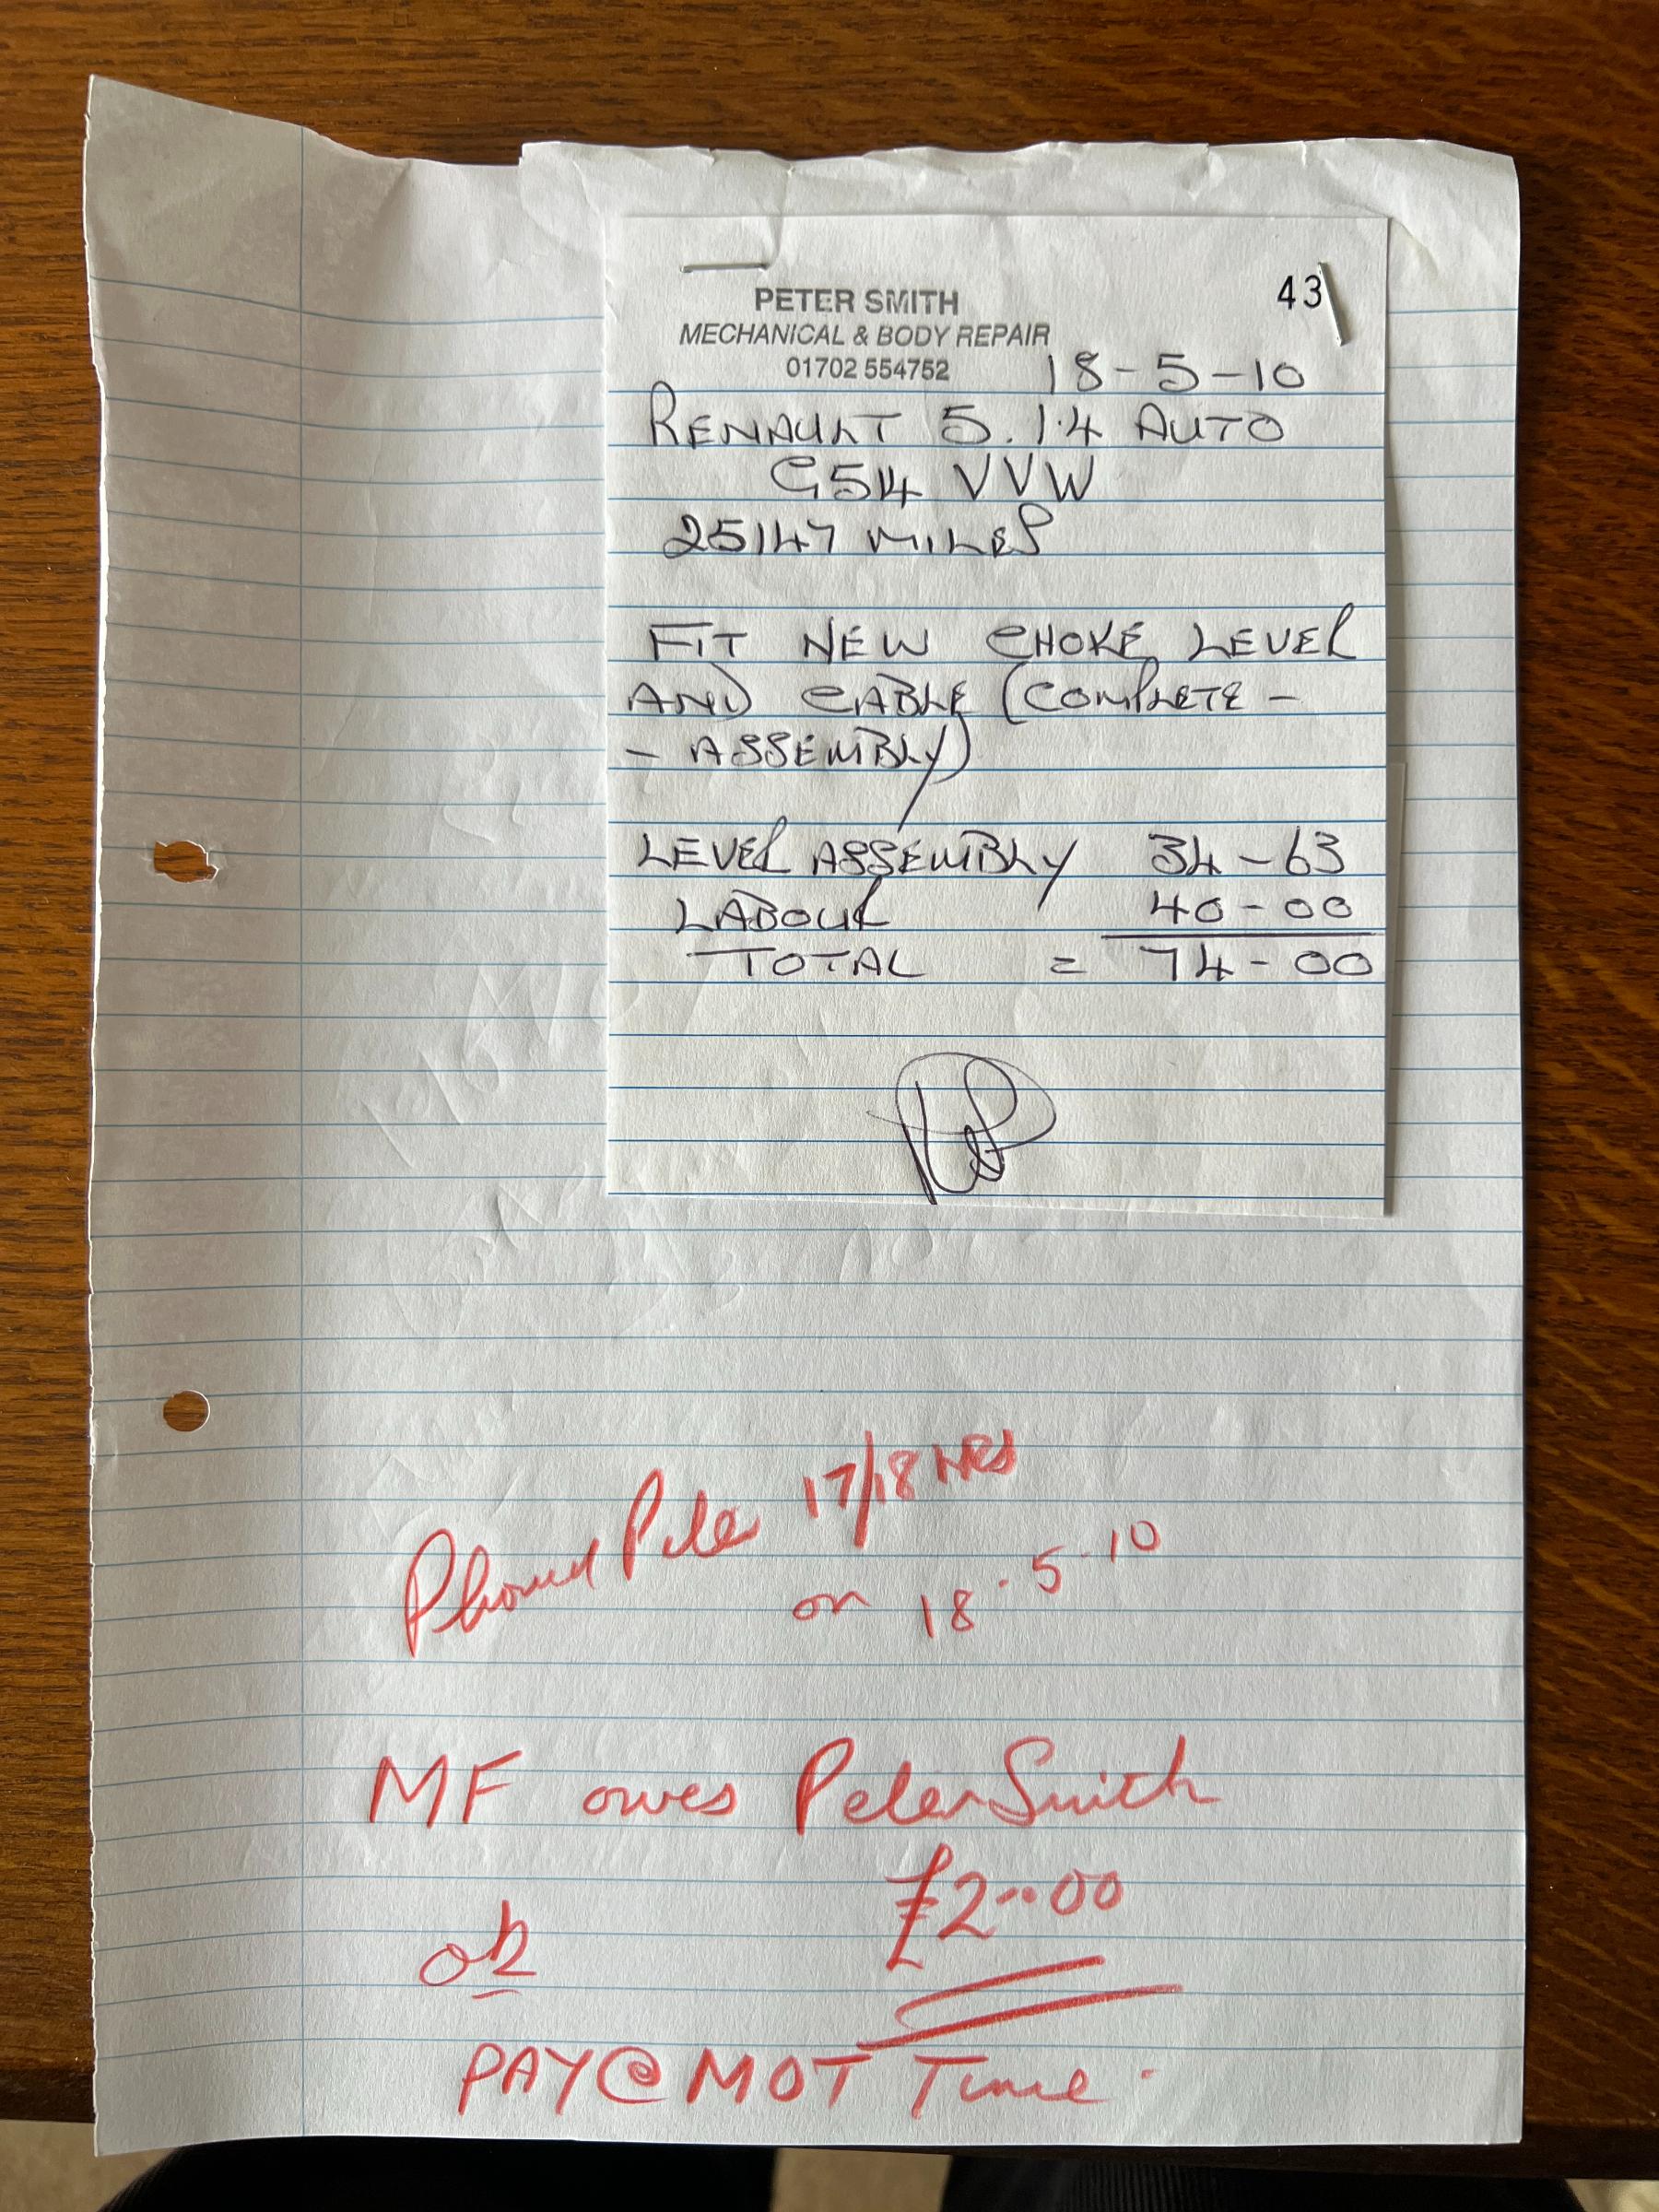 PETER SMITH
43
MECHANICAL & BODY REPAIR
01702 554752
18-5-10
RENAULT 5. 1.4 AUTO
G54 VVW
25147 MILES
FIT NEW CHOKE LEVER
AND CABLE (COMPLETE -
- ASSEMBLY)
LEVER ASSEMBLY 34-63
LABOUR 40-00
TOTAL = 74-00
Phoned Peter 17/18 HRS
on 18.5.10
MF owes Peter Smith
£2-00
ok
PAY @ MOT Time.